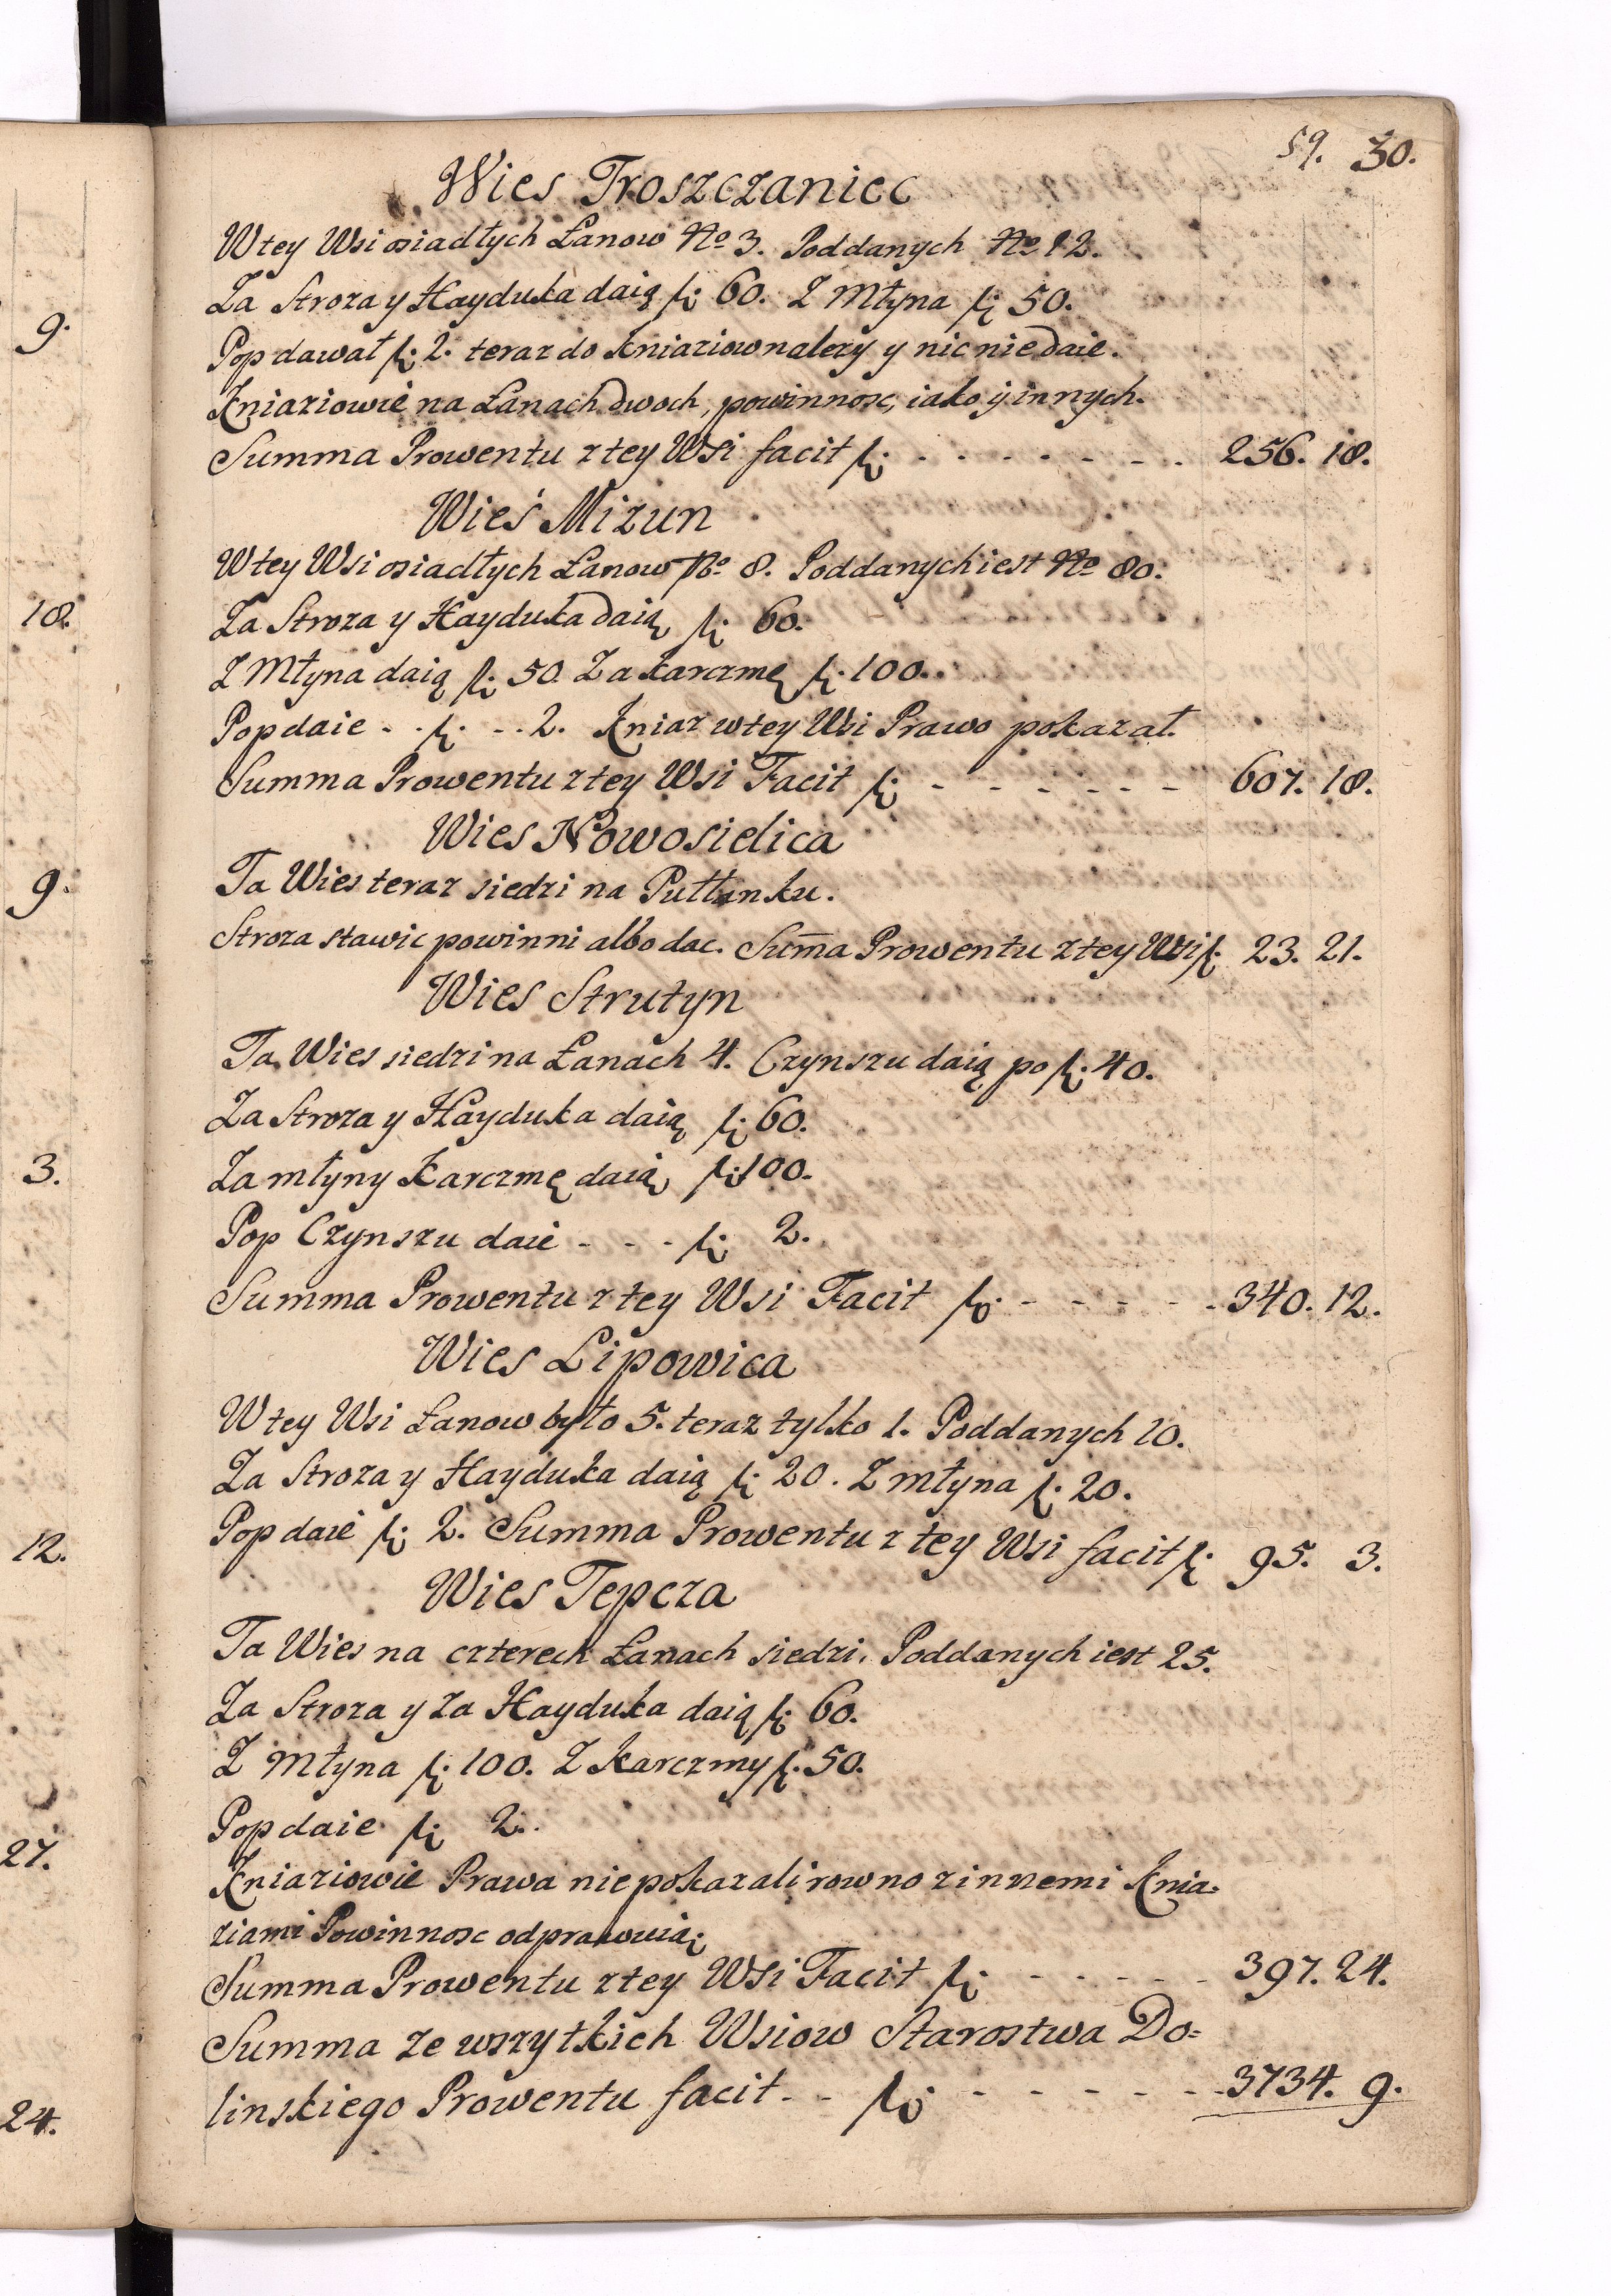 9.
18.
9.
3.
12.
27.
24.
59. 30.
Wies Troszczaniec
W tey Wsi osiadłych Łanow No 3. Poddanych No 12.
Za Stroza y Hayduka daią f: 60. Z Młyna f: 50.
Pop dawał f: 2. teraz do Kniaziow nalezy y nic nie daie.
Kniaziowie na Łanach dwoch, powinnosc, iako y innych.
Summa Prowentu z tey Wsi facit f: - - - - - - - 256. 18.
Wieś Mizun
W tey Wsi osiadłych Łanow No 8. Poddanych iest No 80.
Za Stroza y Hayduka daią f: 60.
Z Młyna daią f: 50. Za karczmę f: 100.
Pop daie - - f: - - 2. Kniaz w tey Wsi Prawo pokazał.
Summa Prowentu z tey Wsi Facit f: - - - - - - 607. 18.
Wies Nowosielica
Ta Wies teraz siedzi na Putłanku.
Stroza stawic powinni albo dac. Sum̄a Prowentu z tey Wsi f: 23. 21.
Wies Strutyn
Ta Wies siedzi na Łanach 4. Czynszu daią po f: 40.
Za Stroza y Hayduka daią f: 60.
Za młyn y Karczmę daią f: 100.
Pop Czynszu daie - - - f: 2.
Summa Prowentu z tey Wsi Facit f: - - - - - 340. 12.
Wies Lipowica
W tey Wsi Łanow było 5. teraz tylko 1. Poddanych 10.
Za Stroza y Hayduka daią f: 20. Z młyna f: 20.
Pop daie f: 2. Summa Prowentu z tey Wsi facit f: 95. 3.
Wies Tepcza
Ta Wies na czterech Łanach siedzi. Poddanych iest 25.
Za Stroza y za Hayduka daią f: 60.
Z Młyna f: 100. Z Karczmy f: 50.
Pop daie f: 2.
Kniaziowie Prawa nie pokazali rowno z innemi Knia=
ziami Powinnosc odprawuią
Summa Prowentu z tey Wsi Facit f: - - - - - 397. 24.
Summa ze wszytkich Wsiow Starostwa Do=
linskiego Prowentu facit - - f: - - - - - - 3734. 9.